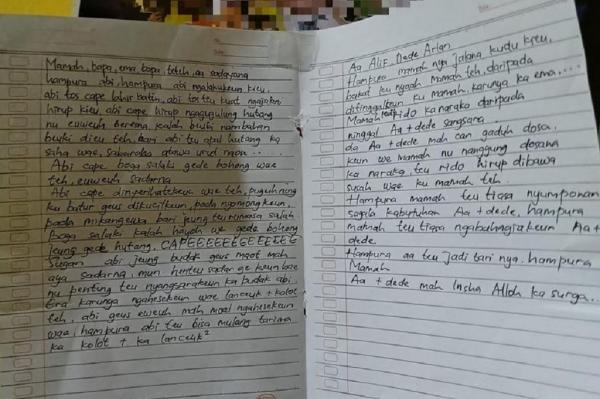 Mamah, bapa, ema, bapa, teteh, aa sadayana
hampura abi, hampura abi ngalakukeun kieu,
abi tos cape lahir batin, abi tos teu kuat ngajalani
hirup kieu, abi cape hirup nanggung hutang
nu euweuh kalah buki nambahan
buki dieu teh, bari abi teu apal hutang ka
saha wae, sabaraha atawa urut naon..
Abi cape boga salaki gede bohong wae
teh, euweuh sadarna
Abi cape wae teh, puguh ning
ku batur geus dikucilkeun, pada nyonongkeun,
pada mikangewa bari jeung teu rumasa salah
boga salaki kalah hayoh we gede bohong
jeung gede hutang, CAPEEEEEEGEEEEEE
Sugan abi jeung budak geus maot mah
aya sadarna, mun henteu sadar ge keun bae
nu penting teu nyangsarakeun ka budak abi
bae karunya ngahesekeun wae lanceuk + kolot
teh, abi geus euweuh mah moal ngahesekeun
wae, hampura abi teu bisa mulang tarima
ka kolot + ka lanceuk²
Aa Alif Dede Arlan
Hampura mamah nya jalana kudu kieu,
bakat ku nyaah mamah teh, daripada
ditinggalkeun ku mamah, karunya ka ema,...
Mamah rido ka naraka daripada
ninggal Aa + dede sangsara.
da Aa + dede mah can gaduh dosa,
keun we Mamah nu nanggung dosana
ka naraka, teu rido hirup dibawa
susah wae ku mamah teh.
Hampura mamah teu tiasa nyumponan
sagala kabutuhan Aa + dede, hampura
mamah teu tiasa ngabahagiakeun Aa +
dede
Hampura aa teu jadi tari nya. hampura
Mamah
Aa + dede mah Insha Alloh ka surga...